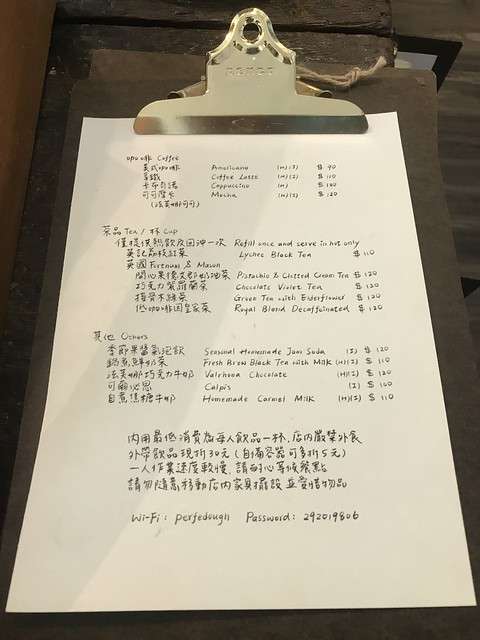 咖啡 Coffee
美式咖啡 Americano (H)(I) $ 90
拿鐵 Coffee Latte (H)(I) $ 110
卡布奇諾 Cappuccino (H) $ 110
可可摩卡 Mocha (H)(I) $ 120
(法芙娜可可)
茶品 Tea / 杯 Cup
僅提供熱飲及回沖一次 Refill once and serve in hot only
英記荔枝紅茶 Lychee Black Tea $ 110
英國 Fortnum & Mason
開心果德文郡奶油茶 Pistachio & Clotted Cream Tea $ 120
巧克力紫羅蘭茶 Chocolate Violet Tea $ 120
接骨木綠茶 Green Tea with Elderflower $ 120
低咖啡因皇家茶 Royal Blend Decaffeinated $ 120
其他 Others
季節果醬氣泡飲 Seasonal Homemade Jam Soda (I) $ 120
鍋煮鮮奶茶 Fresh Brew Black Tea with Milk (H)(I) $ 110
法芙娜巧克力牛奶 Valrhona Chocolate (H)(I) $ 120
可爾必思 Calpis (I) $ 100
自煮焦糖牛奶 Homemade Carmel Milk (H)(I) $ 110
內用最低消費為每人飲品一杯，店內嚴禁外食
外帶飲品現折30元（自備容器可多折5元）
一人作業速度較慢，請耐心等候餐點
請勿隨意移動店內家具擺設並愛惜物品
Wi-Fi: perfedough Password: 292019806